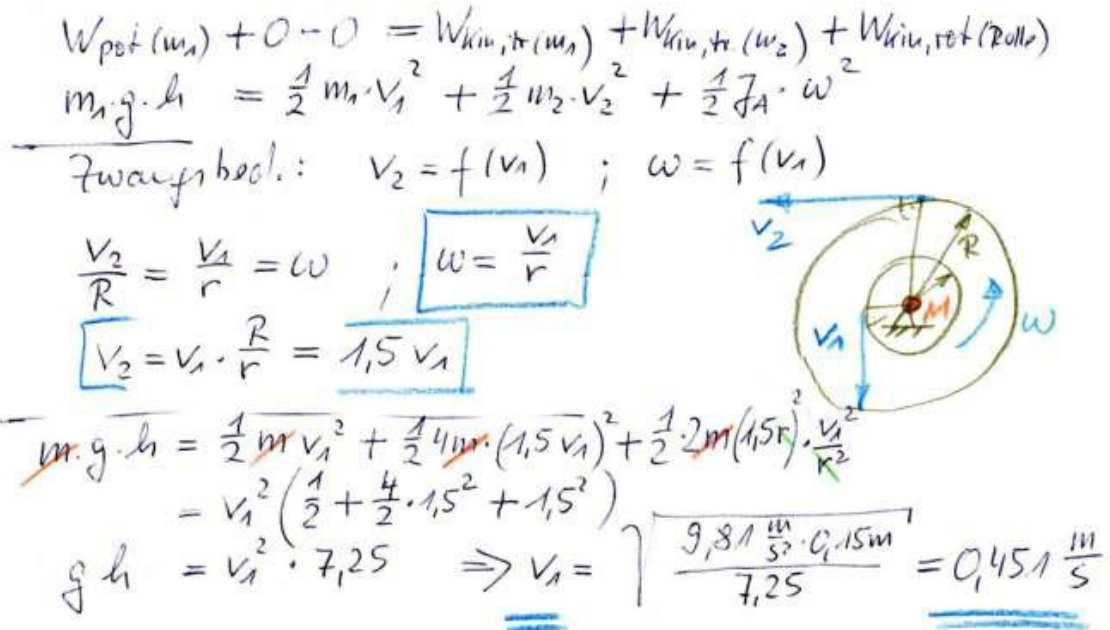 W_pot(m₁) + 0 - 0 = W_kin,tr(m₁) + W_kin,tr.(m₂) + W_kin,rot(Rolle)
m₁·g·h = ½ m₁·v₁² + ½ m₂·v₂² + ½ J_A·ω²
Zwangsbed.: v₂ = f(v₁) ; ω = f(v₁)
v₂/R = v₁/r = ω ; ω = v₁/r
v₂ = v₁·R/r = 1,5 v₁
v₂
R
M
v₁
ω
m·g·h = ½ m v₁² + ½ 4m·(1,5 v₁)² + ½·2m(1,5r)²·v₁²/r²
= v₁² (½ + 4/2·1,5² + 1,5²)
g h = v₁²·7,25 ⇒ v₁ = √(9,81 m/s²·0,15m / 7,25) = 0,451 m/s